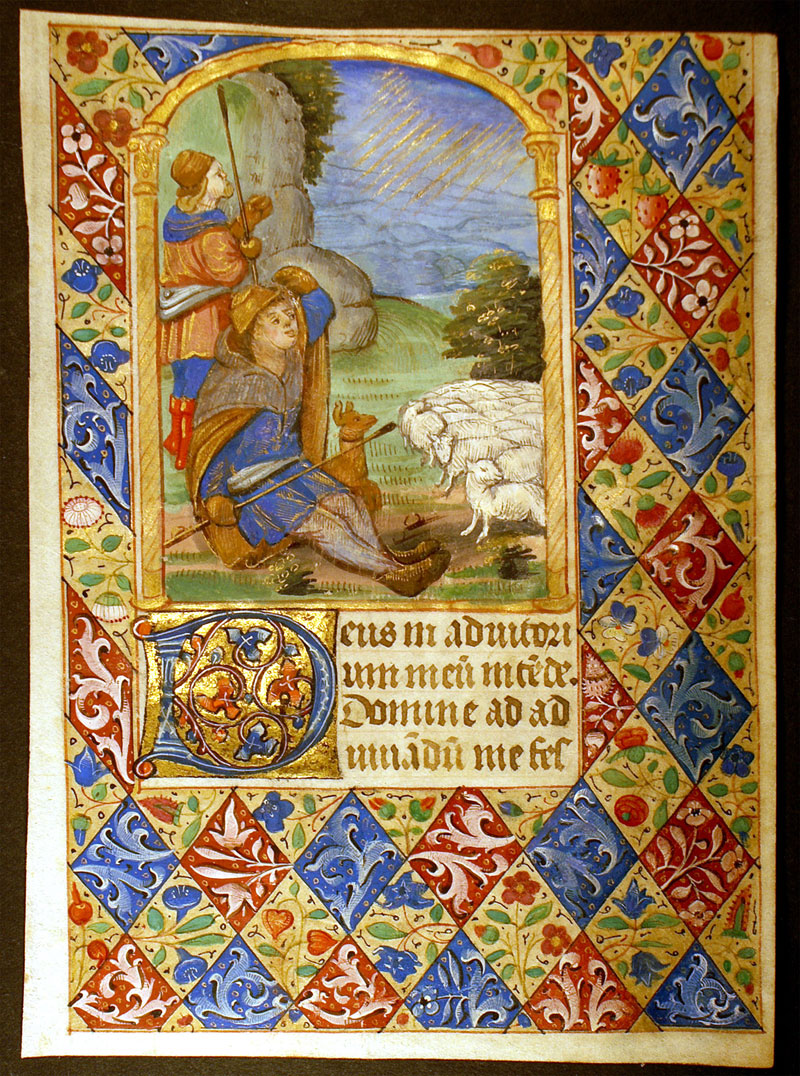 Deus in adiutori
um meū intēde.
Domine ad ad
iuuādū me fes